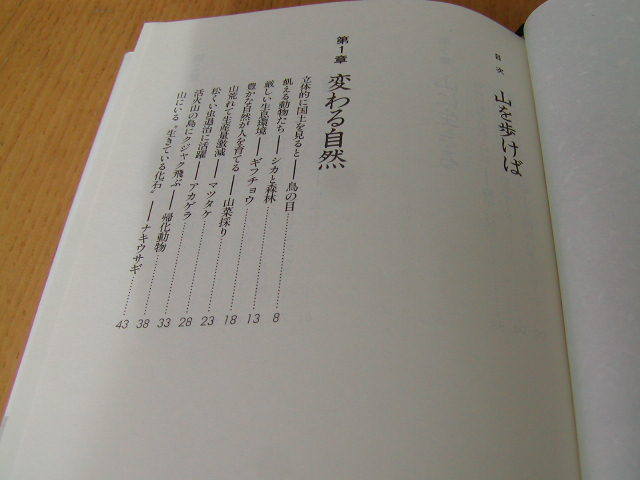 目次
山を歩けば
第1章 変わる自然
立体的に国土を見ると――鳥の目……………8
飢える動物たち――シカと森林……………13
厳しい生息環境――ギフチョウ……………18
豊かな自然が人を育てる――山菜採り……………23
山荒れて生産量激減――マツタケ……………28
松くい虫退治に活躍――アカゲラ……………33
活火山の島にクジャク飛ぶ――帰化動物……………38
山にいる〝生きている化石〟――ナキウサギ……………43